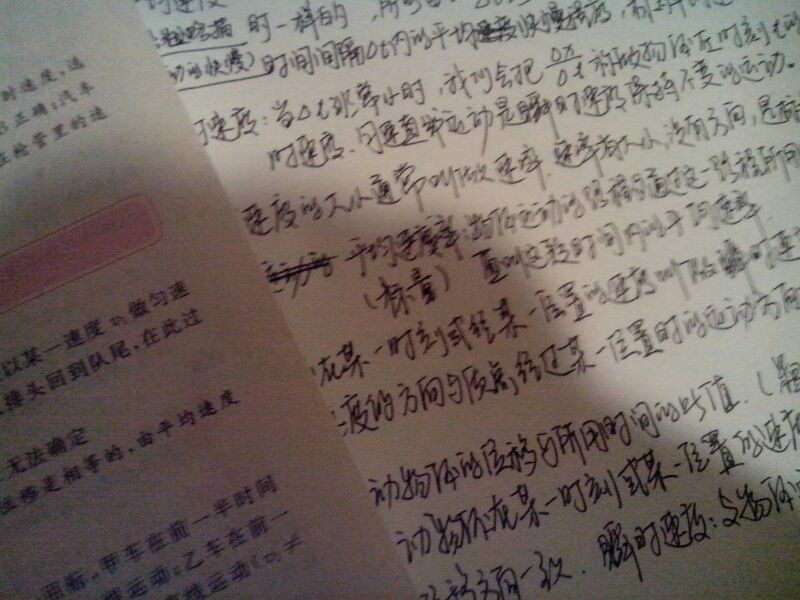 时速度，选
B 正确；汽车
在枪管里的速
以某一速度 v₁ 做匀速
接头回到队尾，在此过
无法确定
位移是相等的，由平均速度
甲车在前一半时间
线运动；乙车在前一
直线运动（v₁ ≠
时一样的
动的快慢）时间间隔Δt内的平均速度
速度：当Δt非常小时，我们会把 Δx/Δt 称做物体在时刻t的
时速度．匀速直线运动是瞬时速度保持不变的运动．
速度的大小通常叫做速率．速率有大小，没有方向，是标
平均速率：物体运动的路程与通过这一路程所用
（标量） 直叫这段时间内的平均速率．
在某一时刻或经某一位置的速度叫做瞬时速
度的方向与质点经过某一位置时的运动方向
动物体的位移与所用时间的比值．（
动物体在某一时刻或某一位置的速度
方向一致．瞬时速度：